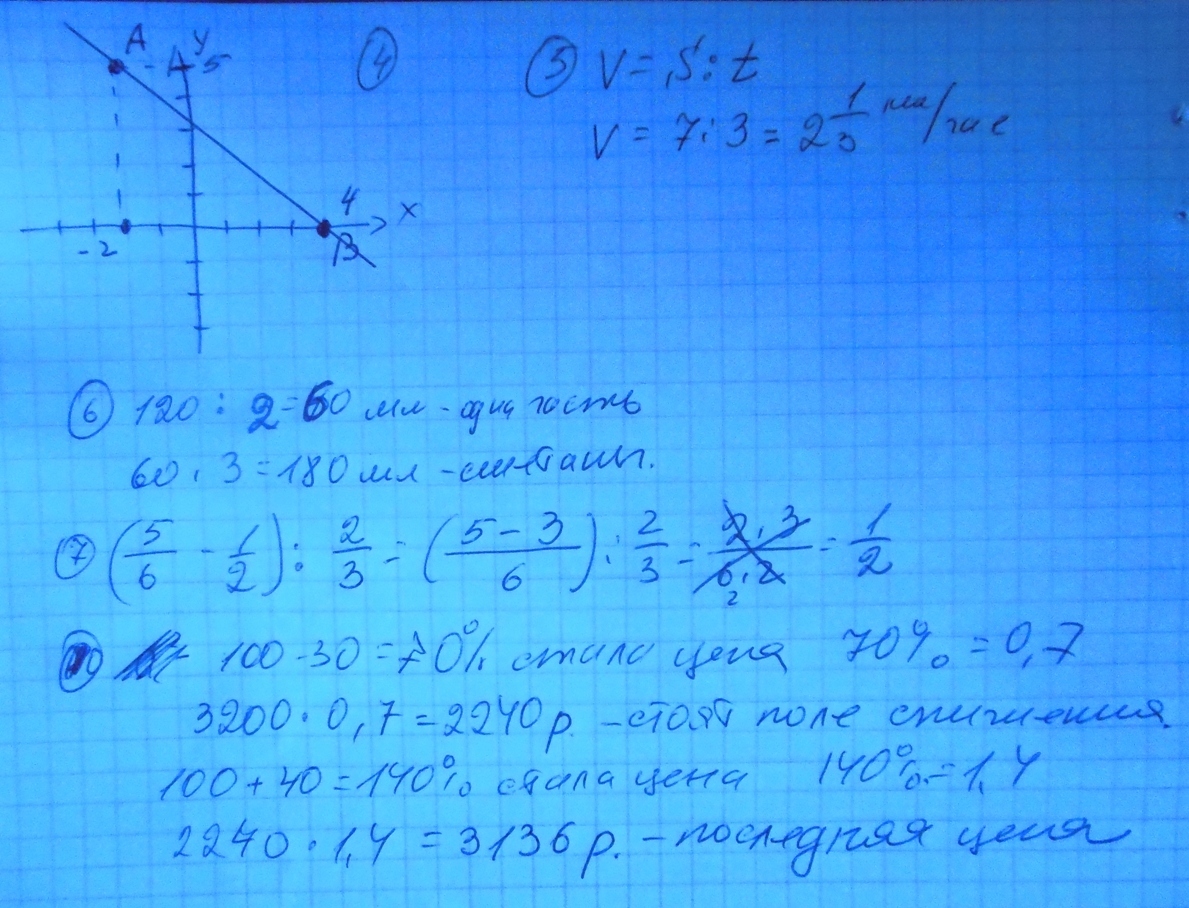 A У 5 ④ ⑤ V = S : t
V = 7 : 3 = 2 1/3 км/час
4 х
-2 В
⑥ 120 : 2 = 60 мл - одна часть
60 · 3 = 180 мл - сметаны.
⑦ (5/6 - 1/2) : 2/3 = ((5 - 3)/6) : 2/3 = (2 · 3)/(6 · 2) = 1/2
100 - 30 = 70% стала цена 70% = 0,7
3200 · 0,7 = 2240 р. - стоят поле снижения.
100 + 40 = 140% стала цена 140% = 1,4
2240 · 1,4 = 3136 р. - последняя цена